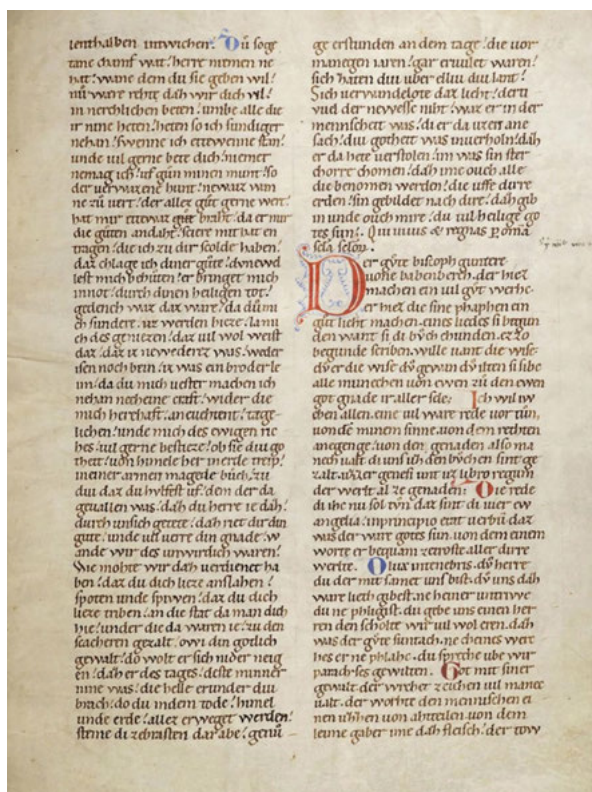 lenthalben intwichen. Dů soge
tane chamf wat herre nimen ne
hat. wane dem du sie geben wil.
nu ware rehte dah wir dich vil.
in nerchlichen beten. umbe alle die
ir nine heten. heten so ich sundiger
nehan. swenne ich ettewenne stan.
unde uil gerne bete dich. niemer
nemag ich. uf gůn minen munt. so
der uerwazene hunt. newaz wan
ne zů uert. der allez gůt gerne wert.
hat mir ettewaz gůt braht. da er mir
die gůten andaht. sciere mit hat en
tragen. die ich zů dir scolde haben.
daz chlage ich diner gůte. dune wel
lest mich behůten. er bringet mich
innot. durch dinen heiligen tot.
gedench waz daz ware. da dů mi
ch sundere. uz werden hieze. la mi
ch des geniezen. daz uil wol weist
daz. daz iz newederz was. weder
isen noch bein. iz was ein broder le
im. da du mich uester machen ich
nehan necheine craft. wider die
mich herehaft. aneuehtent. tage
lichen. unde mich des ewigen ric
hes. uil gerne bestieze. ob sie diu go
theit. uon himele her nierde treip.
meiner armen magede buch. zu
diu daz du hulfest uf. dem der da
geuallen was. dah du herre ie dah.
durch unsich getete. dah net dir din
gute. unde uil uerre din gnade. w
ande wir des unwirdich waren.
Wie mohte wir dah uerdienet ha
ben. daz du dich lieze anslahen.
spoten unde spiwen. daz du dich
lieze triben. an die stat da man dich
hie. under die da waren ie. zu den
scacheren gezalt. owi din gotlich
gewalt. do wolt er sich nider neig
en. dah er des tages. deste minner
nine was. die helle erunder diu
brach. do du indem tode. himel
unde erde. allez erweget werden.
steine di zebrasten dar abe. genů
ge erstunden an dem tage. die uor
manegen iaren. gar eruulet waren.
sich haten diu uber elliu diu lant.
Sich uerwandelote daz lieht. der
uud der newesse niht. waz er in der
mennscheit was. di er da uzen ane
sach. diu gotheit was inuerholn. dah
er da hete uerstolen. im was sin ster
chorre chomen. dah ime ouch alle
die benomen werden. die uffe dirre
erden. sin gebildet nach dir. dah gib
in unde ouch mire. du uil heilige go
tes sun. Qui uiuus & regnas p omia
scla sclou.
Der gůte biscoph guntere
uone babenberch. der hiez
machen ein uil gůt werhc.
er hiez die sine phaphen ein
gůt lieht machen. eines liedes si begun
den want si di bůch chunden. ezzo
begunde scriben. wille uant die wise.
dů er die wise dů gewan dů ilten si sihe
alle munechen. uon ewen zů den ewen
got gnade ir aller sele. Ich wil iw
eben allen. eine uil ware rede uor tůn.
uonde minem sinne. uon dem rehten
anegenge. uon den genaden also ma
nech ualt. di uns uh den bůchen sint ge
zalt. uzzer genesi unt uz libro regum
der werlt al ze genaden. Die rede
di ihe nu sol tůn. daz sint di uier ew
angelia. inprincipio erat uerbu daz
was der ware gotes sun. uon dem einem
worte er bequam ze troste aller dirre
werlte. O lux intenebris. dů herre
du der mit samet uns bist. dů uns dah
ware lieth gibest. ne heiner untriwe
du ne phligist. du gebe uns einen her
ren den scholte wir uil wol eren. dah
was der gůte suntach. ne cheines werc
hes er ne phlahc. du spreche ube wir
paradyses gewilten. Got mit siner
gewalt. der wrchet zeichen uil manec
ualt. der worhte den mennischen ei
nen uhhen uon ahteilen. uon dem
leime gaber ime dah fleisch. der tow